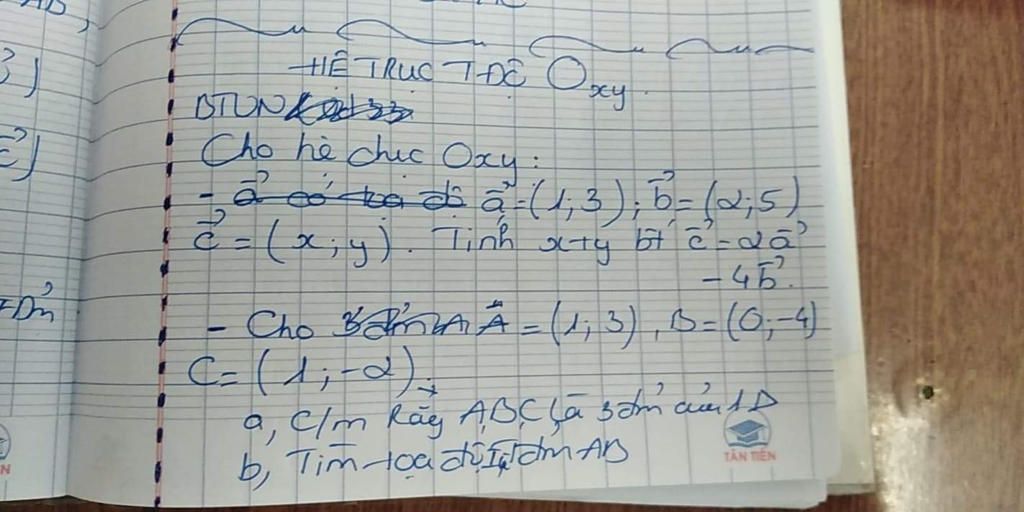 HỆ TRỤC TĐỘ Oxy.
BTVN
Cho hệ chục Oxy:
- a⃗ có tọa độ a⃗ = (1; 3); b⃗ = (2; 5)
c⃗ = (x; y). Tính x+y bt c⃗ = 2a⃗
- 4b⃗.
- Cho A = (1; 3), B = (0; -4)
C = (1; -2).
a, C/m Rằg A,B,C là 3 đỉnh của 1 Δ
b, Tìm tọa độ I, đm AB
TÂN TIẾN